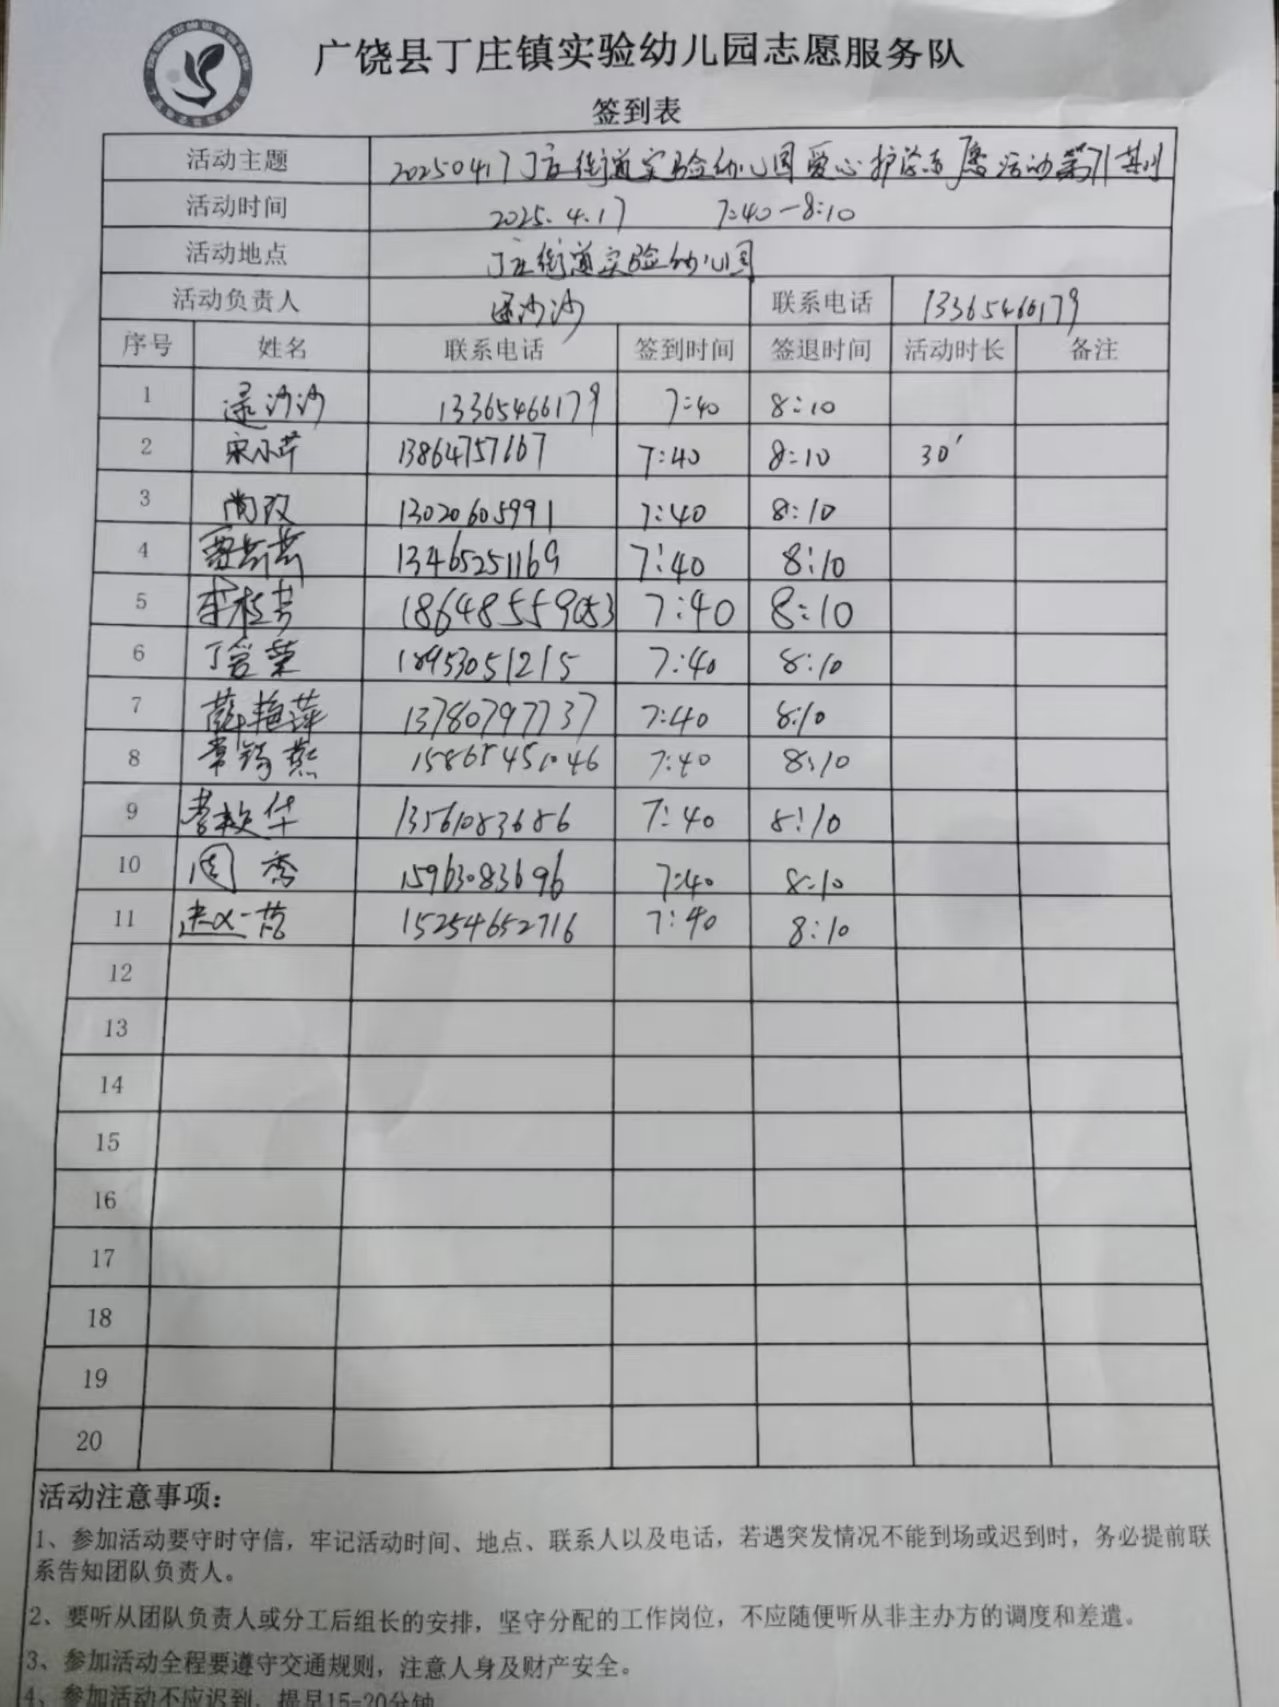 广饶县丁庄镇实验幼儿园志愿服务队
签到表
活动主题 20250417丁庄街道实验幼儿园爱心护学志愿活动第71期
活动时间 2025.4.17 7:40-8:10
活动地点 丁庄街道实验幼儿园
活动负责人 逯沙沙 联系电话 13365466179
序号 姓名 联系电话 签到时间 签退时间 活动时长 备注
1 逯沙沙 13365466179 7:40 8:10
2 宋小芹 13864757167 7:40 8:10 30′
3 尚改 13020605991 7:40 8:10
4 13465251169 7:40 8:10
5 李桂芳 18648559053 7:40 8:10
6 丁爱荣 18953051215 7:40 8:10
7 薛艳萍 13780797737 7:40 8:10
8 常锜燕 15865451046 7:40 8:10
9 李敏华 13561083686 7:40 8:10
10 周秀 15963083696 7:40 8:10
11 15254652716 7:40 8:10
12
13
14
15
16
17
18
19
20
活动注意事项：
1、参加活动要守时守信，牢记活动时间、地点、联系人以及电话，若遇突发情况不能到场或迟到时，务必提前联
系告知团队负责人。
2、要听从团队负责人或分工后组长的安排，坚守分配的工作岗位，不应随便听从非主办方的调度和差遣。
3、参加活动全程要遵守交通规则，注意人身及财产安全。
4、参加活动不应迟到，提早15-20分钟